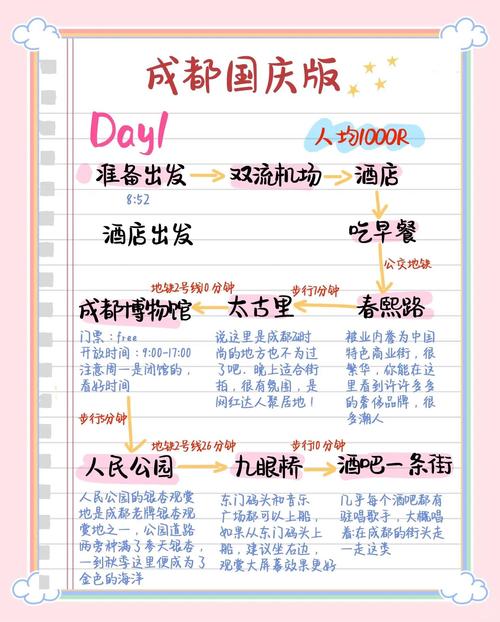 成都国庆版
Day1
人均1000R
准备出发
双流机场
酒店
8:52
酒店出发
吃早餐
公交地铁
地铁2号线10分钟
步行7分钟
成都博物馆
太古里
春熙路
门票:free
开放时间:9:00-17:00
注意周一是闭馆的,
看好时间
说这里是成都最时
尚的地方也不为过
了吧。晚上适合街
拍,很有氛围,是
网红达人聚居地!
被业内誉为中国
特色商业街,很
繁华,你能在这
里看到许许多多
的奢侈品牌,很
多潮人
步行5分钟
地铁2号线26分钟
步行10分钟
人民公园
九眼桥
酒吧一条街
人民公园的银杏观
赏地是成都老牌银杏观
赏地之一,公园道路
两旁种满了参天银杏,
一到秋季这里便成为了
金色的海洋
东门码头和音乐
广场都可以上船,
如果从东门码头上
船,建议坐右边,
观赏大屏幕效果更好
几乎每个酒吧都有
驻唱歌手,大概唱
着:在成都的街头走
一走这类